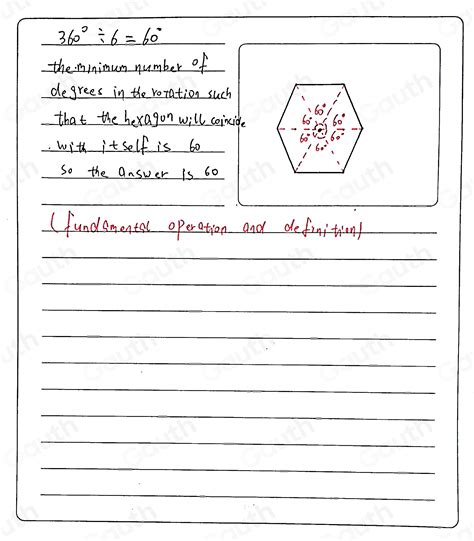 360° ÷ 6 = 60°
the minimum number of
degrees in the rotation such
that the hexagon will coincide
with itself is 60
so the answer is 60
60°
60° 60°
60° 60°
60°
(fundamental operation and definition)
Gauth